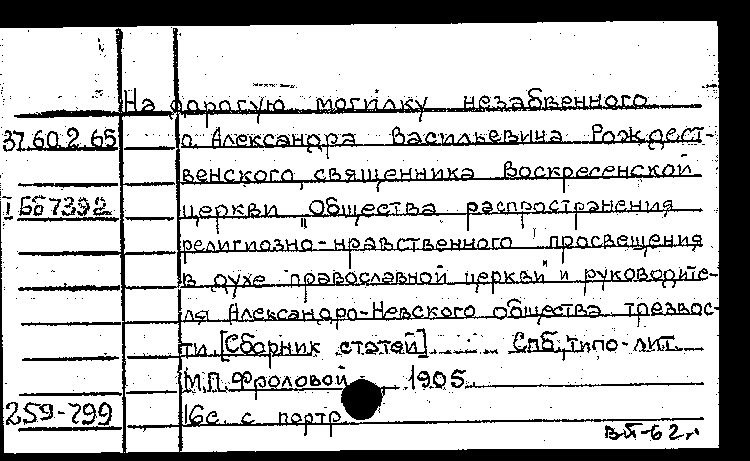 На дорогую могилку незабвенного
37.60.2.65 о. Александра Васильевича Рождест-
венского, священника Воскресенской
I Бб 7392 церкви "Общества распространения
религиозно-нравственного просвещения
в духе православной церкви" и руководите-
ля Александро-Невского общества трезвос-
ти. [Сборник статей] Спб, типо-лит.
М.П. Фроловой, 1905.
259-799 16с. с портр.
ВЯ-62г